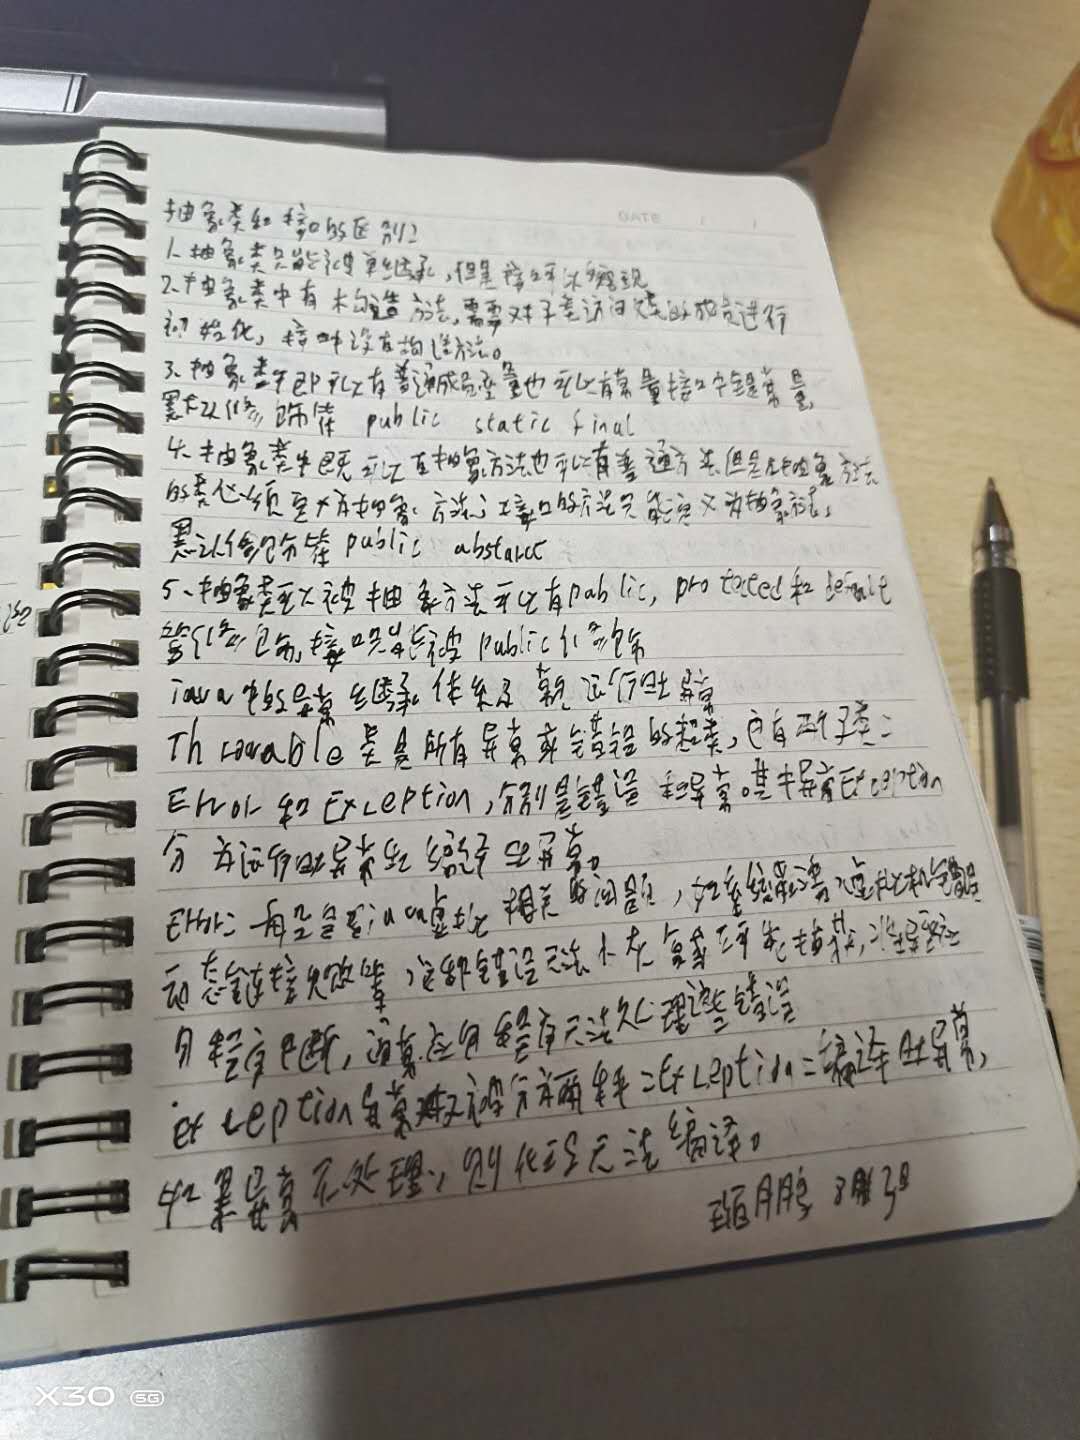 DATE
抽象类和接口的区别
1.抽象类只能被单继承,但是接口可以多实现
2.抽象类中有构造方法,需要对子类访问父类的成员进行
初始化,接口中没有构造方法。
3.抽象类中即可以有普通成员变量也可以有常量接口中全是常量,
默认修饰符 public static final
4.抽象类中既可以有抽象方法也可以有普通方法但是有抽象方法
的类必须定义为抽象 接口的方法只能定义为抽象方法,
默认修饰符 public abstarct
5、抽象类 抽象方法可以有public, protected和default
等修饰,接口只能被public修饰
java中的异常继承体系
Throwable类是所有异常或错误的超类,它有两个子类:
Error和Exception,分别是错误和异常。其中异常Exception
分为运行时异常
Error: 一般是指java虚拟机相关的问题,如系统崩溃,虚拟机错误
动态链接失败等,这种错误无法 或不可能捕获,
程序中断,通常应用程序无法处理这些错误
Exception异常又被分为两种:Exception:编译时异常,
如果异常不处理,则代码无法编译。